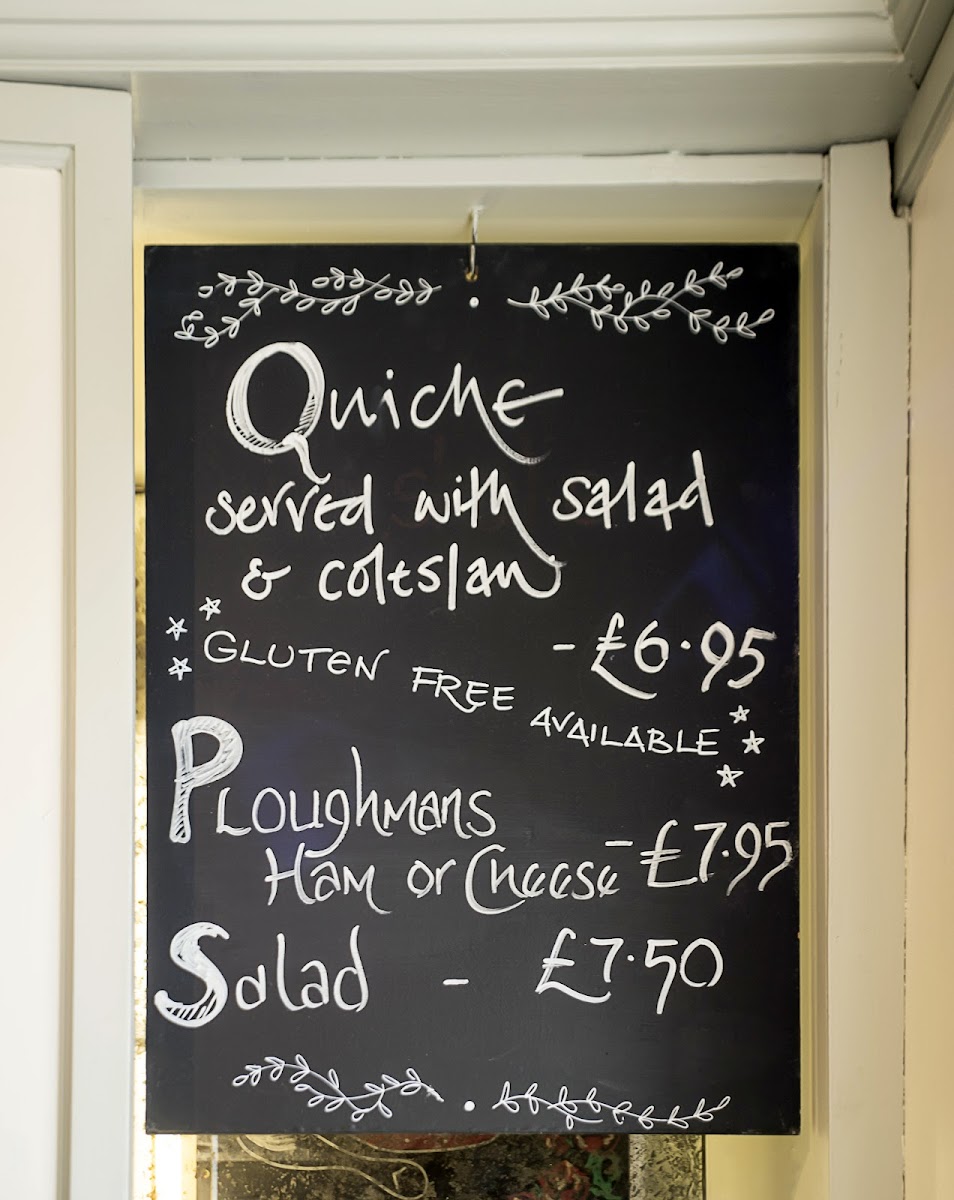 Quiche
served with salad
& coleslaw
- £6.95
GLUTEN FREE AVAILABLE
Ploughmans
Ham or Cheese - £7.95
Salad - £7.50